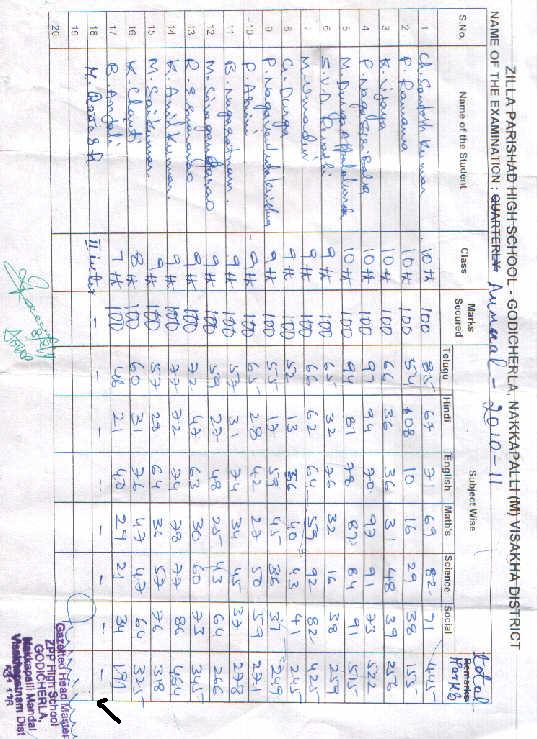 ZILLA PARISHAD HIGH SCHOOL - GODICHERLA, NAKKAPALLI (M) VISAKHA DISTRICT
NAME OF THE EXAMINATION : QUARTERLY Annual - 2010-11
S.No. Name of the Student Class Marks Secured Subject Wise Total Marks Remarks
Telugu Hindi English Maths Science Social
1 Ch. Santosh Kumar 10th 100 85 67 71 69 82 71 445
2 P. Ramana 10th 100 54 08 10 16 29 38 155
3 K. Vijaya 10th 100 66 36 36 31 48 39 256
4 P. Naga 10th 100 97 94 70 97 91 73 522
5 M. Durga 10th 100 94 81 78 87 84 91 515
6 S.V.D. Revathi 9th 100 65 32 76 32 16 38 259
7 M. Umadevi 9th 100 66 62 64 59 92 82 425
8 G. Durga 9th 100 52 13 56 40 43 41 245
9 P. 9th 100 55 17 59 45 36 37 249
10 P. 9th 100 65 28 42 27 50 59 271
11 B. Nagaratnam 100 57 31 74 34 45 37 278
12 M. 9th 100 59 27 48 25 43 64 266
13 R. 9th 100 72 47 63 30 60 73 345
14 K. Anil Kumar 9th 100 77 72 74 78 77 86 464
15 M. Sai Kumar 9th 100 57 29 64 36 57 76
16 K. Chanti 8th 100 60 31 76 47 47 64 325
17 B. Anjali 7th 100 48 21 40 27 21 34 191
18 M. II inter - - - - - - - -
19
20
Gazetted Head Master
ZPP High School
GODICHERLA,
Nakkapalli Mandal
Visakhapatnam Dist